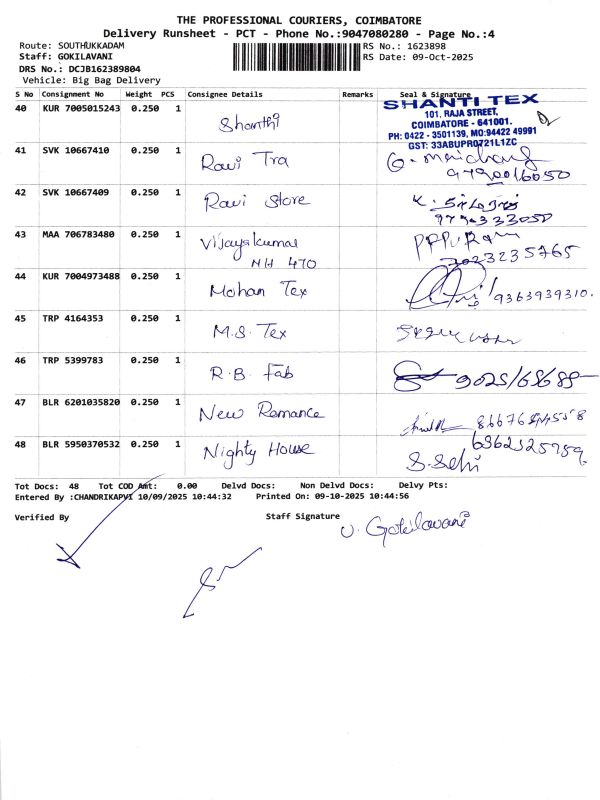 THE PROFESSIONAL COURIERS, COIMBATORE
Delivery Runsheet - PCT - Phone No.:9047080280 - Page No.:4
Route: SOUTHUKKADAM RS No.: 1623898
Staff: GOKILAVANI RS Date: 09-Oct-2025
DRS No.: DCJB162389804
Vehicle: Big Bag Delivery
S No Consignment No Weight PCS Consignee Details Remarks Seal & Signature
40 KUR 7005015243 0.250 1 Shanthi
SHANTI TEX
101, RAJA STREET,
COIMBATORE - 641001.
PH: 0422 - 3501139, MO:94422 49991
GST: 33ABUPR0721L1ZC
41 SVK 10667410 0.250 1 Ravi Tra
42 SVK 10667409 0.250 1 Ravi Store
43 MAA 706783480 0.250 1 Vijayakumar
NH 470
44 KUR 7004973488 0.250 1 Mohan Tex 9363939310.
45 TRP 4164353 0.250 1 M.S. Tex
46 TRP 5399783 0.250 1 R.B. Fab
47 BLR 6201035820 0.250 1 New Romance
48 BLR 5950370532 0.250 1 Nighty House
Tot Docs: 48 Tot COD Amt: 0.00 Delvd Docs: Non Delvd Docs: Delvy Pts:
Entered By :CHANDRIKAPVI 10/09/2025 10:44:32 Printed On: 09-10-2025 10:44:56
Verified By Staff Signature